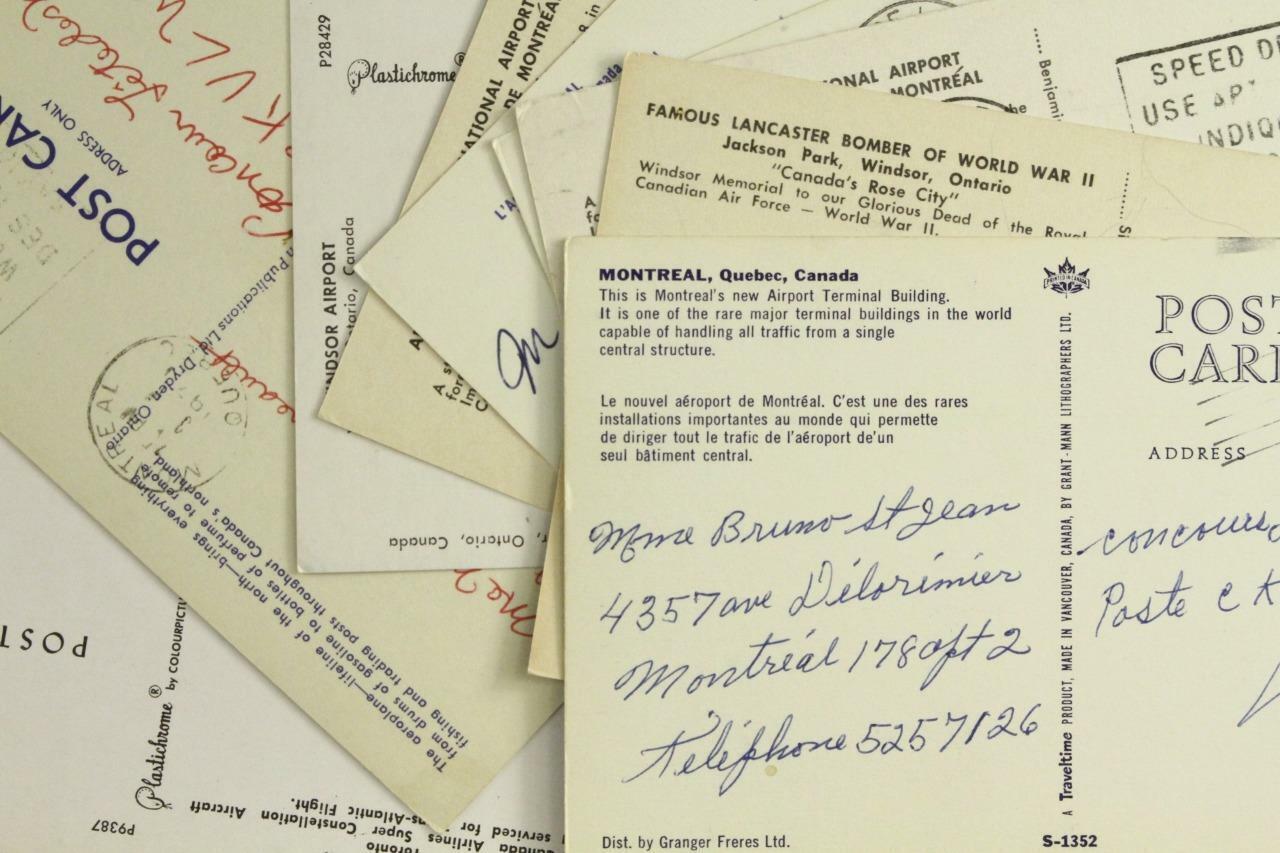 POST CA
ADDRESS ONLY
Concours
CKVL
P28429
Plastichrome®
NATIONAL AIRPORT
DE MONTRÉA
ONAL AIRPORT
MONTRÉAL
Benjami
SPEED
USE
INDI
FAMOUS LANCASTER BOMBER OF WORLD WAR II
Jackson Park, Windsor, Ontario
"Canada's Rose City"
Windsor Memorial to our Glorious Dead of the Royal
Canadian Air Force — World War II.
NDSOR AIRPORT
ntario, Canada
r, Ontario, Canada
n Publications Ltd., Dryden, Ontario
TREAL
The aeroplane—lifeline of the north—brings everything
from drums of gasoline to bottles of perfume to remote
fishing and trading posts throughout Canada's northland.
POST
Plastichrome® by COLOURPICTU
P9387
oronto
anada Airlines Super Constellation Aircraft
serviced for
ns-Atlantic Flight.
MONTREAL, Quebec, Canada
This is Montreal's new Airport Terminal Building.
It is one of the rare major terminal buildings in the world
capable of handling all traffic from a single
central structure.
Le nouvel aéroport de Montréal. C'est une des rares
installations importantes au monde qui permette
de diriger tout le trafic de l'aéroport de'un
seul bâtiment central.
Mme Bruno St Jean
4357 ave Délorimier
Montréal 178 apt 2
Téléphone 5257126
Dist. by Granger Freres Ltd.
S-1352
A Traveltime PRODUCT, MADE IN VANCOUVER, CANADA, BY GRANT-MANN LITHOGRAPHERS LTD.
PRINTED IN CANADA
POST
CARD
ADDRESS
concours
Poste CK